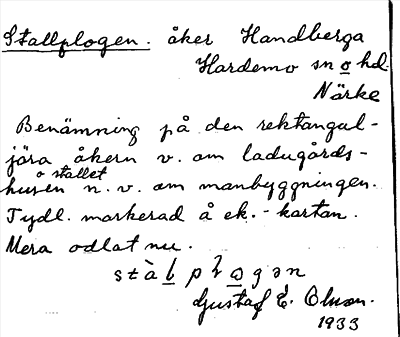 Stallplogen. åker Handberga
Hardemo sn o hd.
Närke
Benämning på den rektangul-
jära åkern v. om ladugårds-
o stallet
husen n. v. om manbyggningen.
Tydl. markerad å ek.-kartan.
Mera odlat nu.
Gustaf E. Olsson.
1933